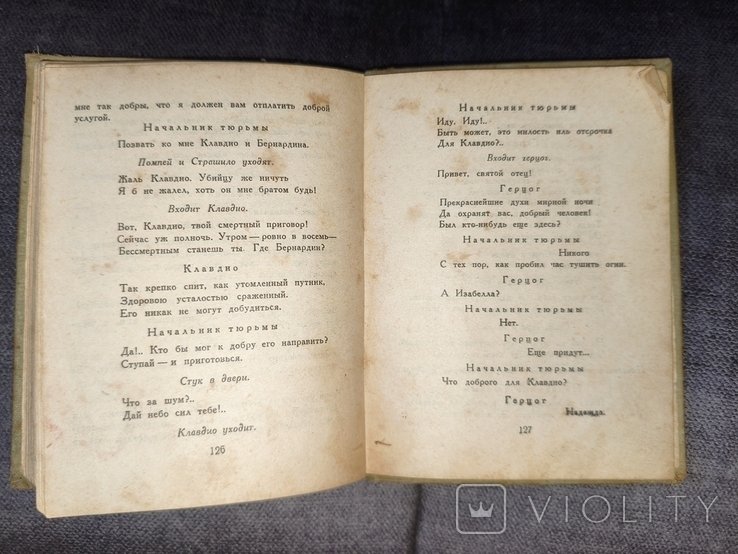 мне так добры, что я должен вам отплатить доброй
услугой.
Начальник тюрьмы
Позвать ко мне Клавдио и Бернардина.
Помпей и Страшило уходят.
Жаль Клавдио. Убийцу же ничуть
Я б не жалел, хоть он мне братом будь!
Входит Клавдио.
Вот, Клавдио, твой смертный приговор!
Сейчас уж полночь. Утром — ровно в восемь—
Бессмертным станешь ты. Где Бернардин?
Клавдио
Так крепко спит, как утомленный путник,
Здоровою усталостью сраженный.
Его никак не могут добудиться.
Начальник тюрьмы
Да!.. Кто бы мог к добру его направить?
Ступай — и приготовься.
Стук в двери.
Что за шум?..
Дай небо сил тебе!..
Клавдио уходит.
126
Начальник тюрьмы
Иду. Иду!..
Быть может, это милость иль отсрочка
Для Клавдио?..
Входит герцог.
Привет, святой отец!
Герцог
Прекраснейшие духи мирной ночи
Да охранят вас, добрый человек!
Был кто-нибудь еще здесь?
Начальник тюрьмы
Никого
С тех пор, как пробил час тушить огни.
Герцог
А Изабелла?
Начальник тюрьмы
Нет.
Герцог
Еще придут...
Начальник тюрьмы
Что доброго для Клавдио?
Герцог
Надежда.
127
VIOLITY